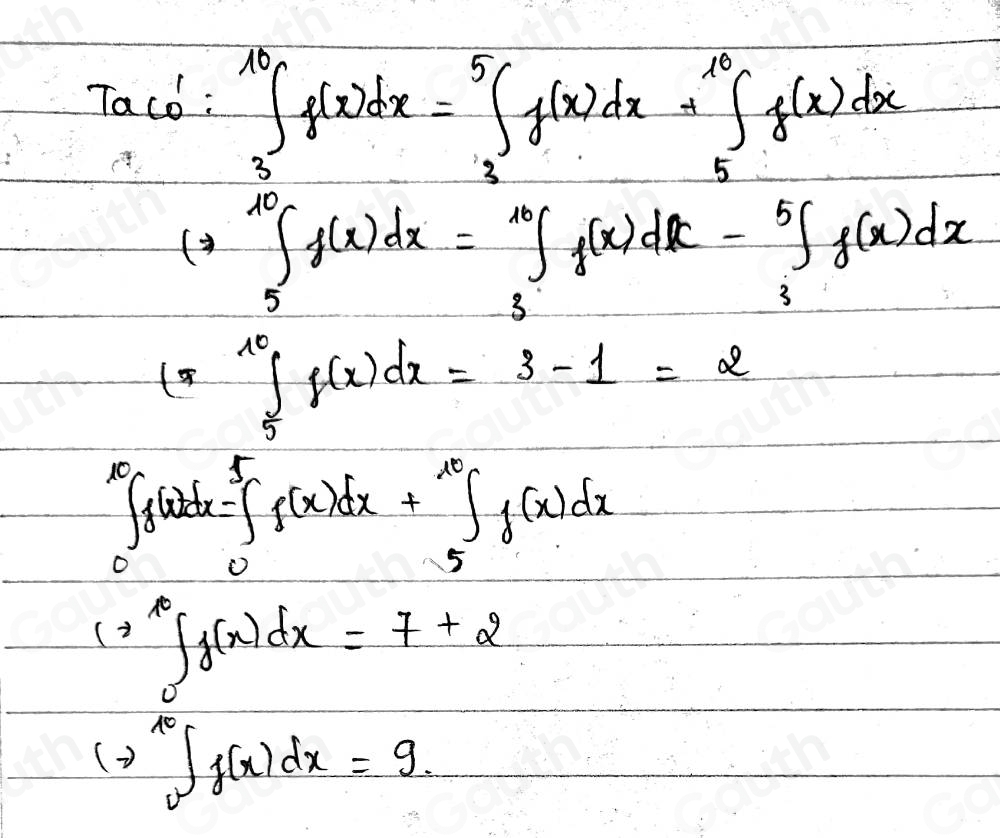 Ta có: ∫₃¹⁰ f(x)dx = ∫₃⁵ f(x)dx + ∫₅¹⁰ f(x)dx
(→ ∫₅¹⁰ f(x)dx = ∫₃¹⁰ f(x)dx - ∫₃⁵ f(x)dx
(→ ∫₅¹⁰ f(x)dx = 3 - 1 = 2
∫₀¹⁰ f(x)dx = ∫₀⁵ f(x)dx + ∫₅¹⁰ f(x)dx
(→ ∫₀¹⁰ f(x)dx = 7 + 2
(→ ∫₀¹⁰ f(x)dx = 9.
Gauth